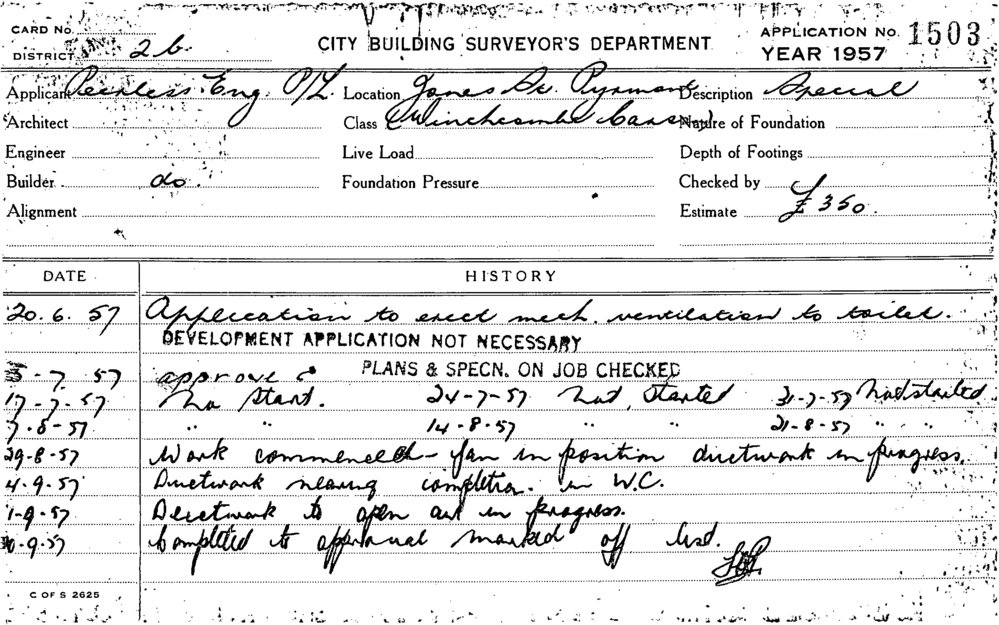 CARD No.
DISTRICT 2b
CITY BUILDING SURVEYOR'S DEPARTMENT
APPLICATION No. 1503
YEAR 1957
Applicant Peerless Eng P/L Location Jones St. Pyrmont Description Special
Architect Class (Winchcombe Carson) Nature of Foundation
Engineer Live Load Depth of Footings
Builder do. Foundation Pressure Checked by
Alignment Estimate £350.
DATE HISTORY
20.6.57 Application to erect mech. ventilation to toilet.
DEVELOPMENT APPLICATION NOT NECESSARY
-7.57 approved PLANS & SPECN. ON JOB CHECKED
17-7-57 No Start. 24-7-57 Not Started 31-7-57 Not started
7-8-57 " " 14-8-57 " " 21-8-57 " "
29-8-57 Work commenced - fan in position ductwork in progress.
4-9-57 Ductwork nearing completion. in W.C.
1-9-57 Ductwork to open air in progress.
-9-57 Completed to approval marked off list.
C OF S 2625